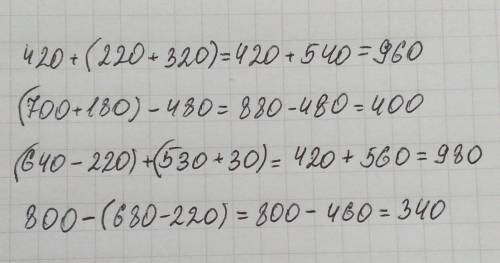 420+(220+320)=420+540=960
(700+180)-480=880-480=400
(640-220)+(530+30)=420+560=980
800-(680-220)=800-460=340